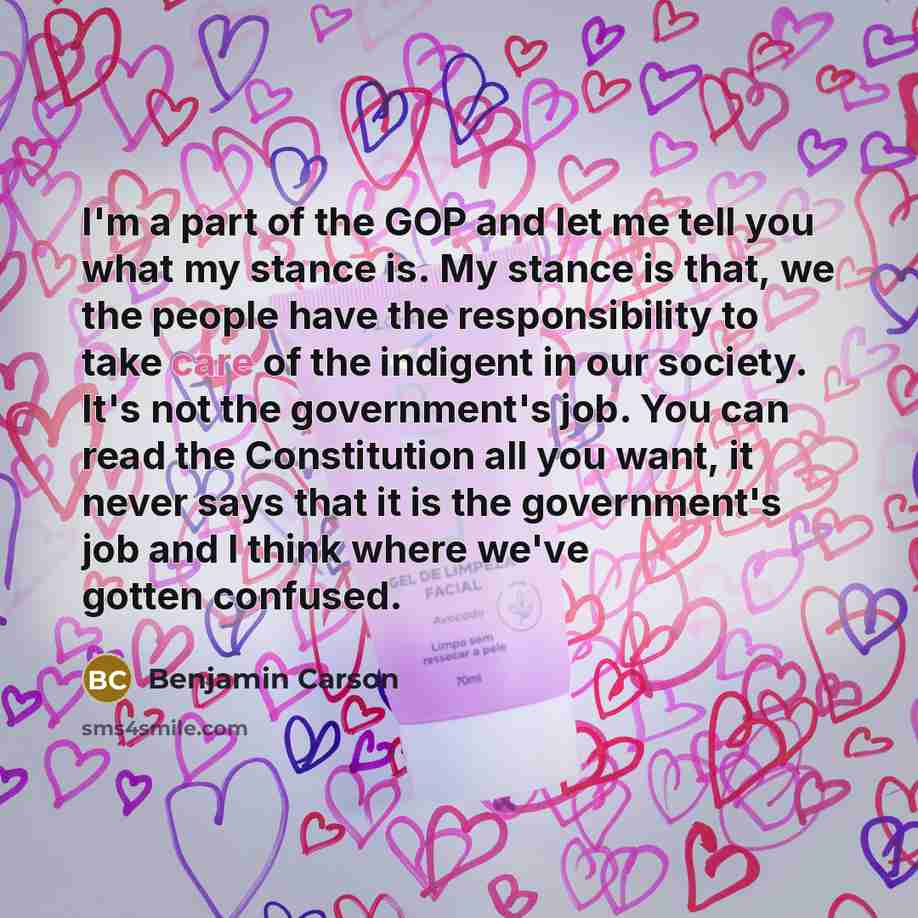 I'm a part of the GOP and let me tell you
what my stance is. My stance is that, we
the people have the responsibility to
take care of the indigent in our society.
It's not the government's job. You can
read the Constitution all you want, it
never says that it is the government's
job and I think where we've
gotten confused.
GEL DE LIMPEZA
FACIAL
Avocado
Limpa sem
ressecar a pele
70ml
BC Benjamin Carson
sms4smile.com